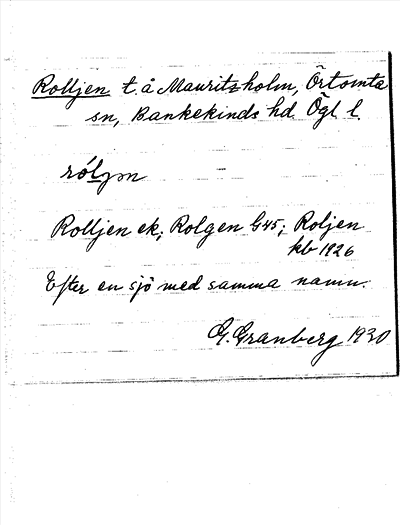 Rolljen t. å Mauritzholm, Örtomta
sn, Bankekinds hd Ögl l.
rólyən
Rolljen ek; Rolgen G45; Roljen
kb 1926
Efter en sjö med samma namn.
G. Granberg 1930